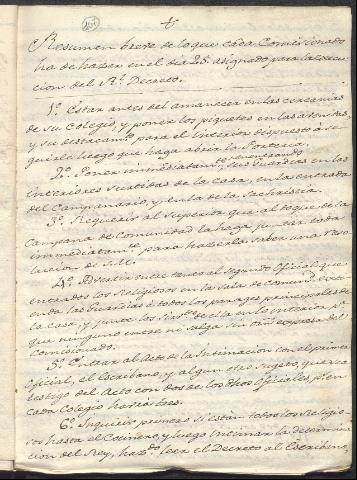 Resumen breve de lo que cada Comisionado
ha de hazer en el dia 25. asignado para la execu-
cion del Rl. Decreto.
1º. Estar antes del amanecer en las cercanias
de su Colegio, y poner los piquetes en las
y su destacamto. para el interior dispuesto a se-
guirle luego que haga abrir la Porteria.
2º. Poner immediatamte. sus Guardias en las
interiores salidas de la Casa, en la entrada
del Campanario, y en la de la Sachristia.
3º. Requerir al Superior que al toque de la
Campana de Comunidad la haga juntar toda
immediatamte. para hazerla saber una reso-
lucion de S.M.
4º. Advertir entre tanto al segundo Oficial, que
entrados los Religiosos en la sala de Comund. exti-
enda las Guardias a todos los parages principales de
la casa, y junte los de ella en lo interior pa.
que ninguno entre ni salga sin orn. expresa del
Comisionado.
5º. Entrar al Acto de la Intimacion con el primer
Oficial, el Escribano, y algun otro Sugeto, que sea
testigo del Acto con dos de los dhos Oficiales pr. en
cada Colegio havra tres.
6º. Inquirir primero si estan todos los Religio-
sos hasta el Cocinero, y luego intimar la determina-
cion del Rey, hazdo. leer el Decreto al Escribano,